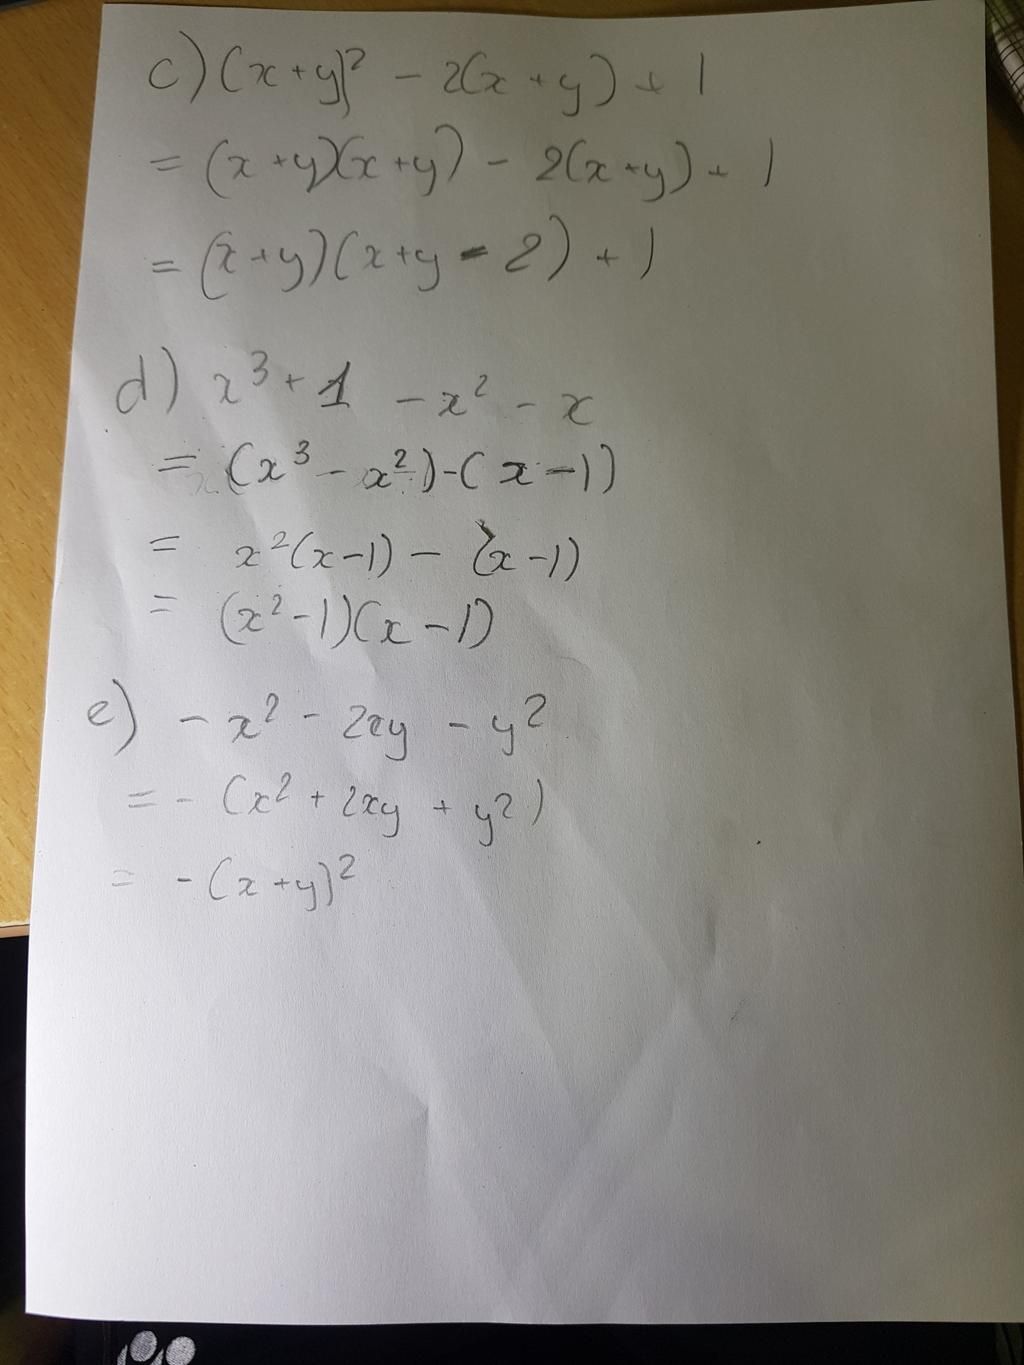 c) (x+y)² - 2(x+y) + 1
= (x+y)(x+y) - 2(x+y) + 1
= (x+y)(x+y-2) + 1
d) x³ + 1 - x² - x
= (x³ - x²) - (x-1)
= x²(x-1) - (x-1)
= (x²-1)(x-1)
e) -x² - 2xy - y²
= -(x² + 2xy + y²)
= -(x+y)²